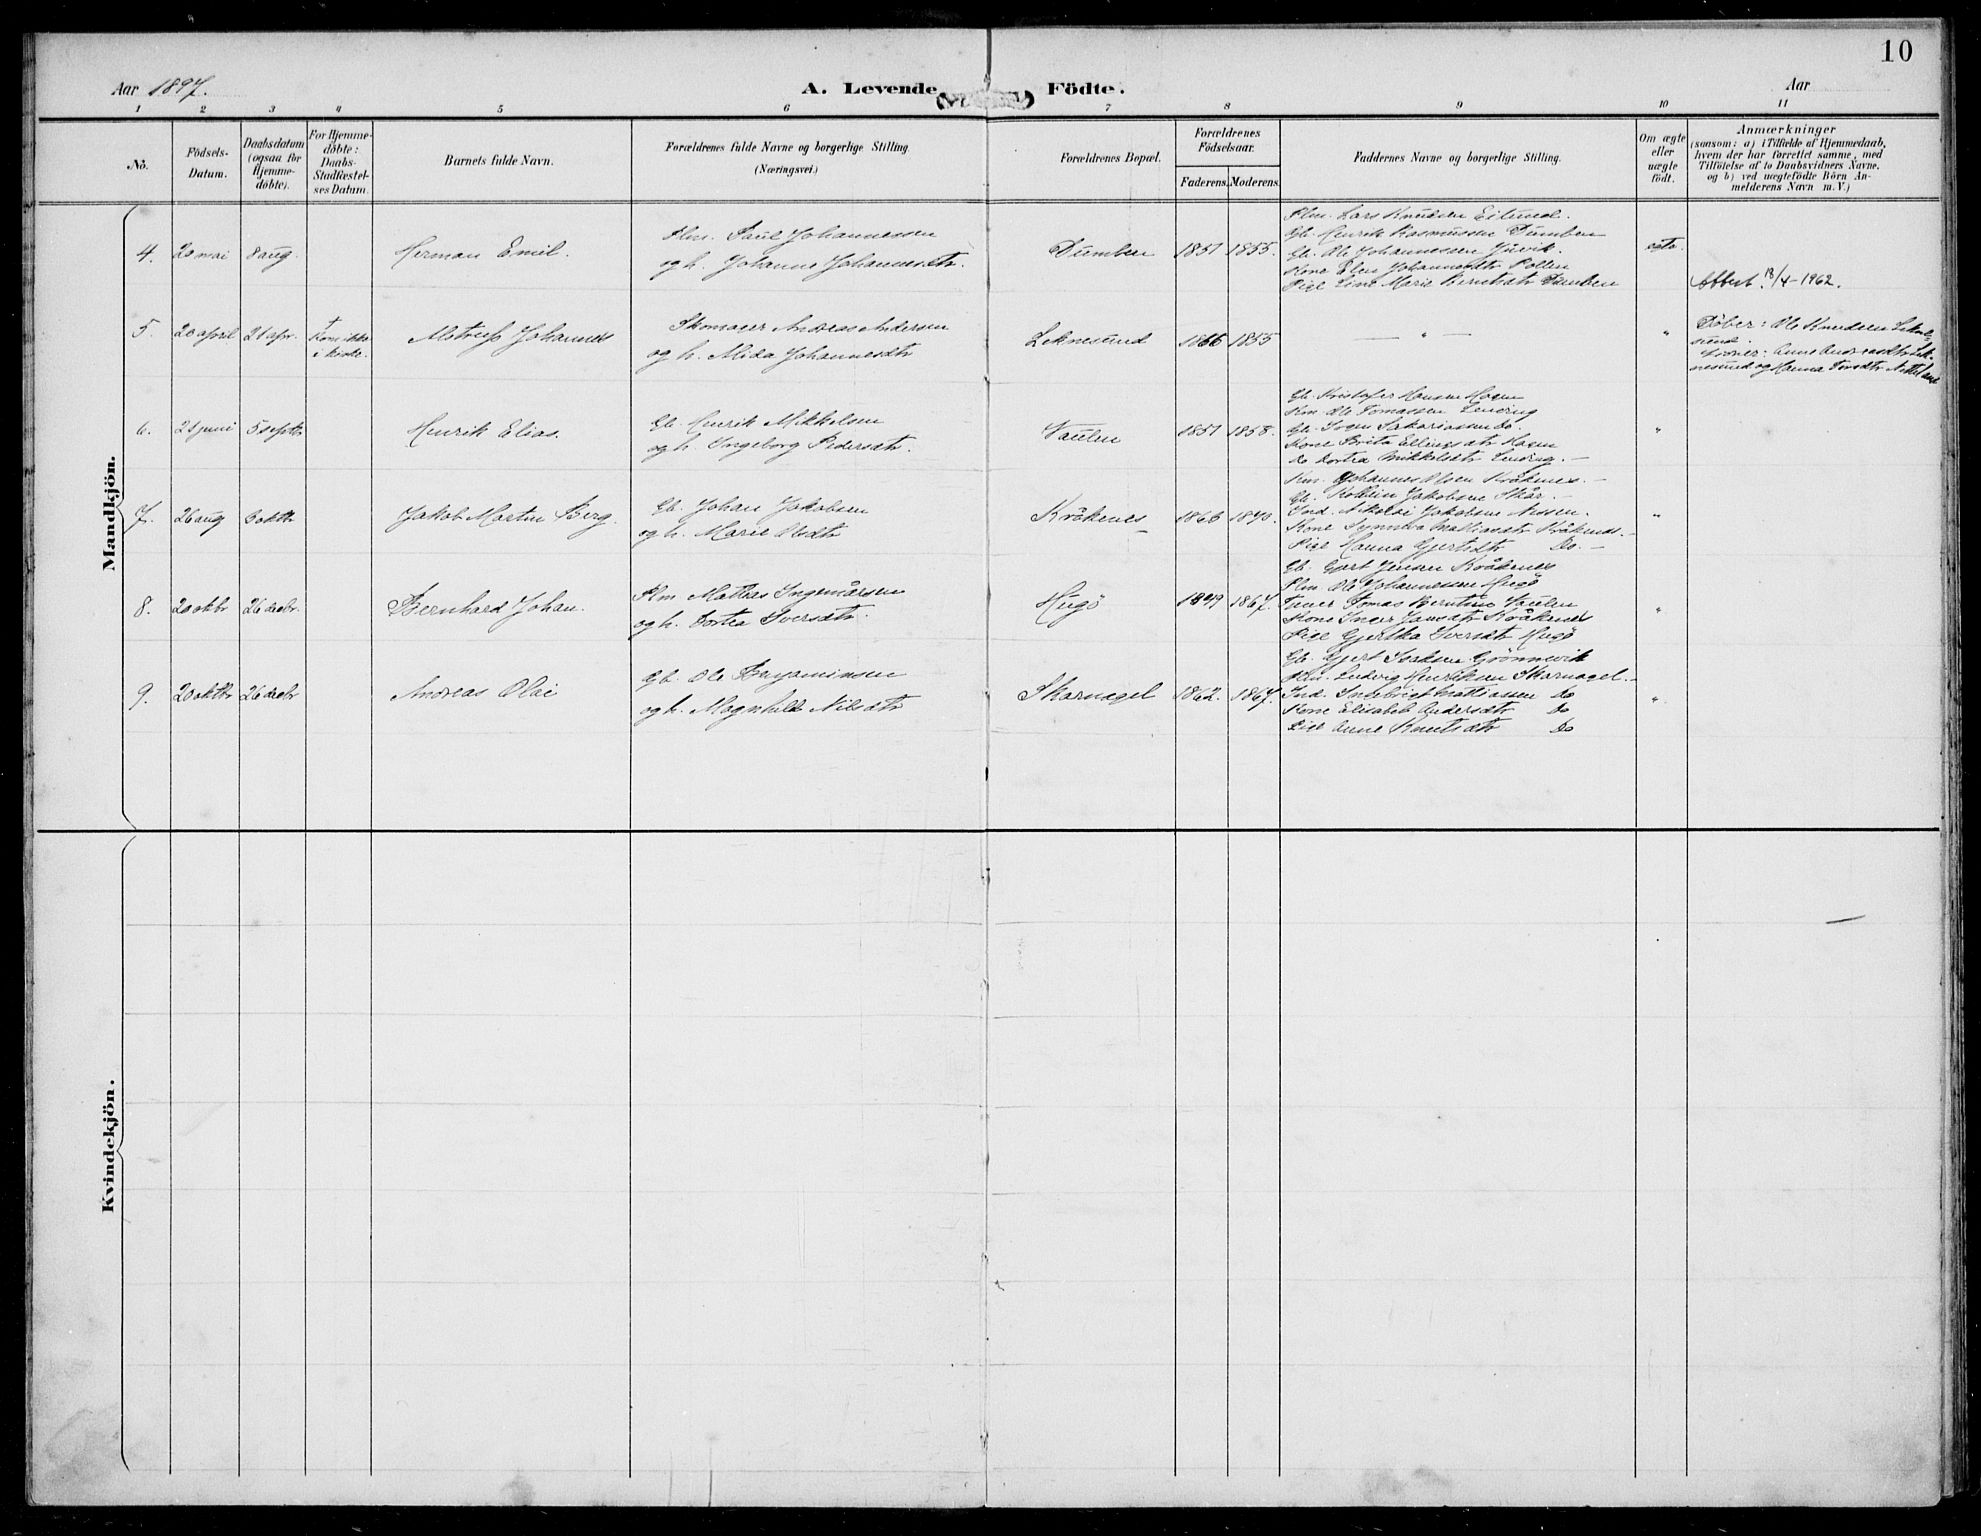 10
Aar 1897.
A. Levende Födte.
Aar
1 2 3 4 5 6 7 8 9 10 11
Nô.
Födsels-Datum.
Daabsdatum (ogsaa for Hjemmedöbte).
For Hjemmedöbte: Daabs-Stadfæstelses Datum.
Barnets fulde Navn.
Forældrenes fulde Navne og borgerlige Stilling. (Næringsvei.)
Forældrenes Bopæl.
Forældrenes Födselsaar.
Faderens. Moderens.
Faddernes Navne og borgerlige Stilling.
Om ægte eller uægte födt.
Anmærkninger
(saasom: a) i Tilfælde af Hjemmedaab, hvem der har forrettet samme, med Tilföielse af to Daabsvidners Navne, og b) ved uægtefödte Börn Anmelderens Navn m. V.)
Mandkjön.
4. 20 mai 8 aug. Herman Emil.
Plm. Paul Johannessen
og h. Johanne Johannesdtr.
Dumben 1851 1855.
Plm. Lars Knudsen Eitund.
Gb. Henrik Rasmussen Dumben
Gb. Ole Johannessen Juvik.
Kone Elen Johannesdtr Pollen
Pige Line Marie Berntsdtr Dumben
egte.
Attest 13/4-1962.
5. 20 april 21 apr. † Kom ikke i kirke. Johannes
Skomager Andreas Andersen
og h. Alida Johannesdtr
Leknesund 1866 1855
— " —
"
Döber: Ole Knudsen Leknesund.
6. 21 juni 5 septbr Henrik Elias.
Gb. Henrik Mikkelsen
og h. Ingeborg Pedersdtr.
Vaulen 1851 1858.
Gb. Kristofer Hansen
Km. Ole Tomassen
Gb. Sakariassen Do.
Kone Brita Ellingsdtr
Do Dortea Mikkelsdtr
"
7. 26 aug 3 oktbr Jakob Martin Berg.
Gb. Johan Jakobsen
og h. Marie Olsdtr
Kråkenes 1866 1870.
Km. Johannes Olsen Kråkenes. —
Gb. Jakobsen Skår. —
Ind. Nikolai Jakobsen
Kone Synneva Mattiasdtr Kråkenes. —
Pige Hanna Gjertsdtr Do. —
"
8. 20 oktbr 26 decbr. Bernhard Johan.
Plm Mathias Ingemårsen
og h. Dortea Iversdtr.
Hugö 1849 1867.
Gb. Gjert Jensen Kråkenes
Plm. Ole Johannessen Hugö
Tomas Berntsen Vaulen
Kone Inger Jansdtr Kråkenes
Pige Iversdtr Hugö
"
9. 20 oktbr 26 decbr Andreas Olai
Gb. Ole Benjaminsen
og h. Magnhild Nilsdtr
Skarnagel 1862. 1867.
Gb. Gjert Isaksen Grönnevik
Plm. Ludvig Henriksen Skarnagel. —
Ind. Ingebrigt Mattiassen Do
Kone Elisabet Andersdtr Do
Pige Anne Knutsdtr Do
"
Kvindekjön.